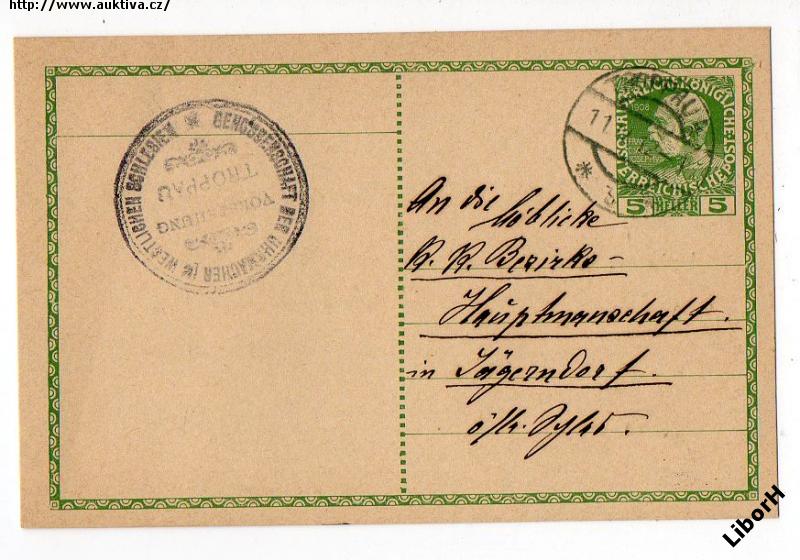 http://www.auktiva.cz/
GENOSSENSCHAFT DER UHRMACHER IM WESTLICHEN SCHLESIEN
VORSTEHUNG
TROPPAU
TROPPAU
11
1908
5 HELLER 5
An die löbliche
K. K. Bezirks-
Hauptmanschaft.
in Jägerndorf.
östr. Schles.
LiborH